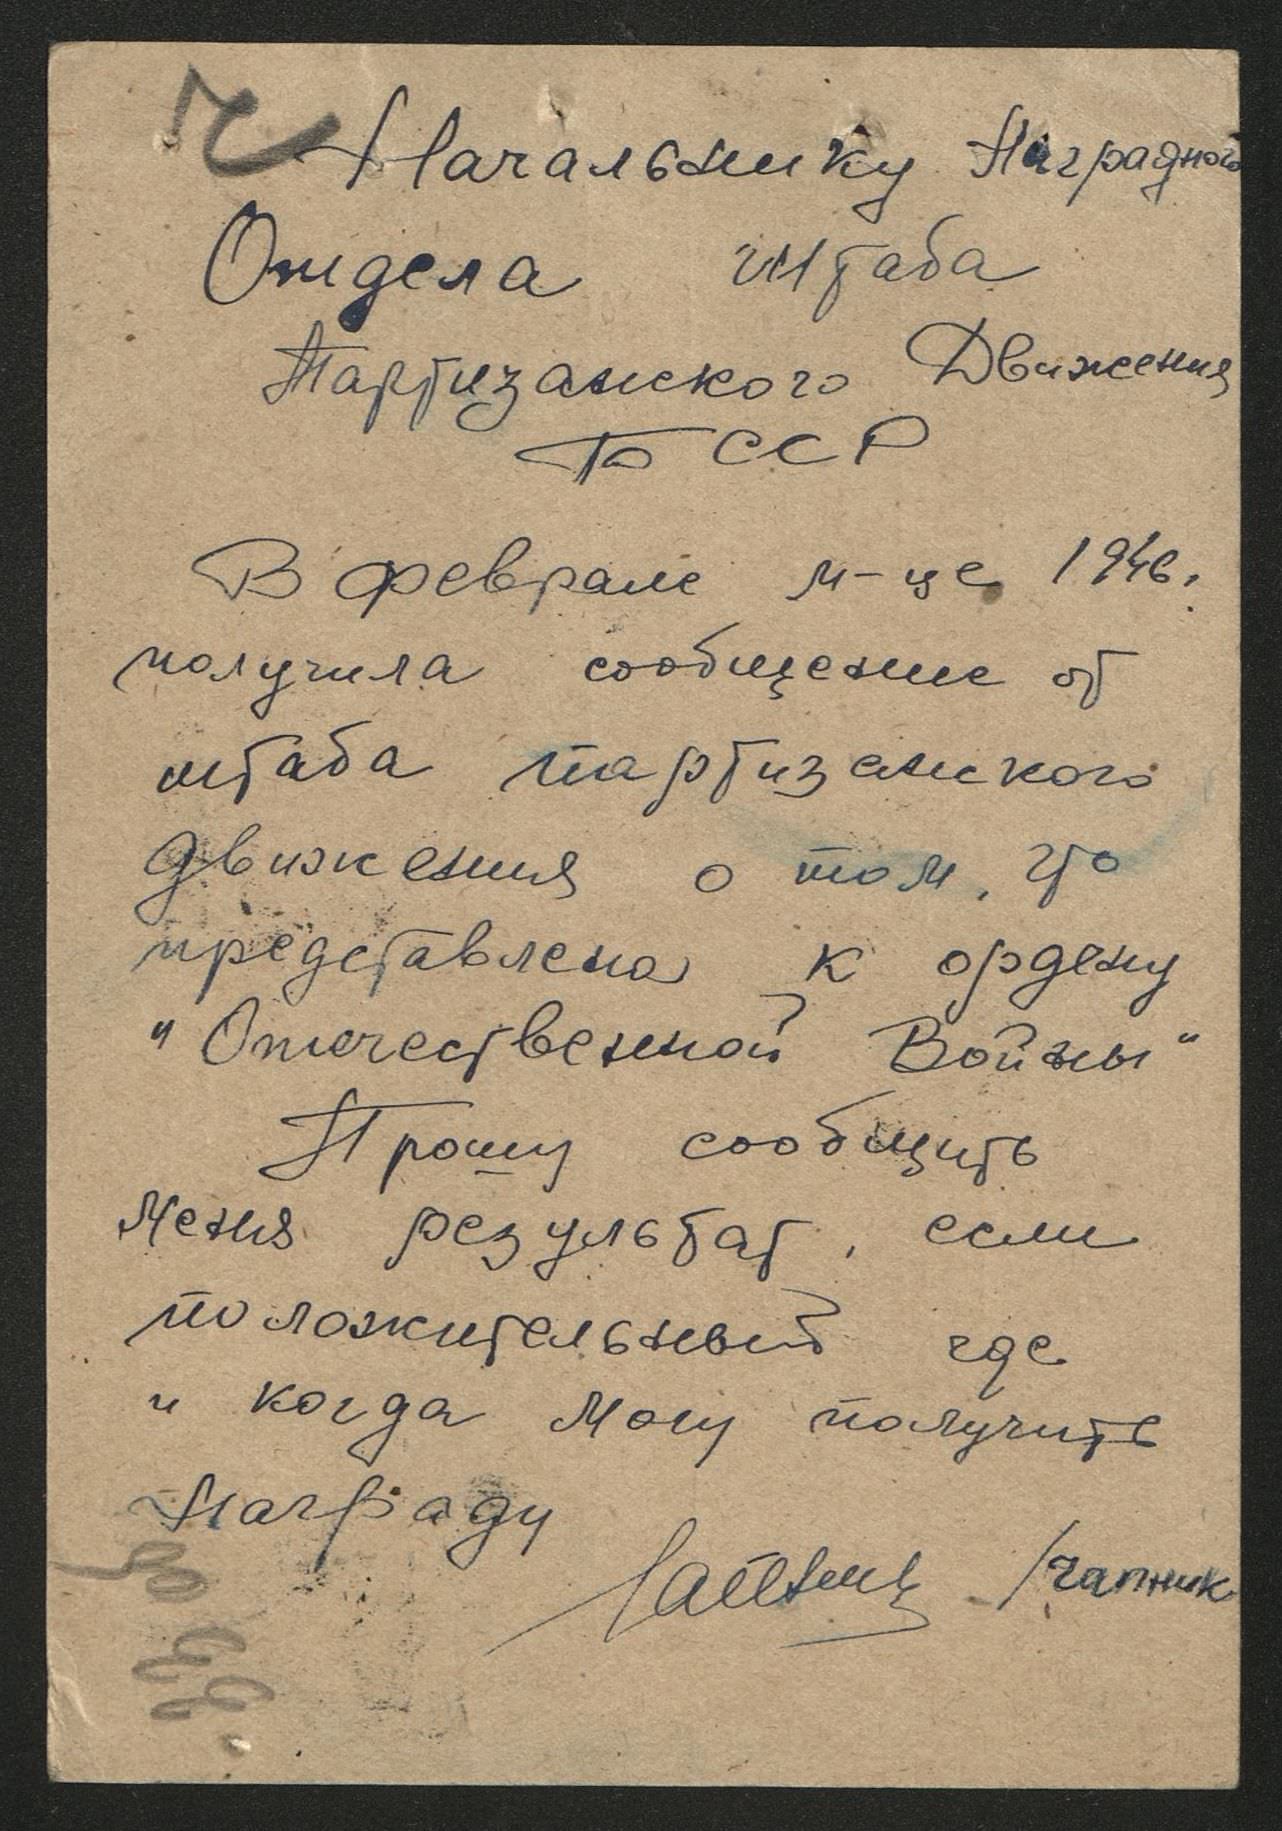 Ч
Начальнику Наградного
Отдела штаба
Партизанского Движения
БССР
В феврале м-це 1946.
получила сообщение от
штаба партизанского
движения о том, что
представлена к ордену
"Отечественной Войны"
Прошу сообщить
меня результат, если
положительный где
и когда могу получить
Награду
/Чапник